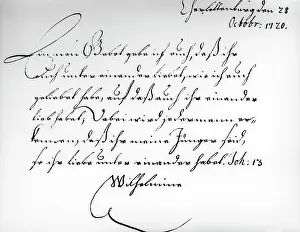 Charlottenburg den 28
Octobr: 1720.
Ein neu Gebot gebe ich euch, daß ihr
Euch unter einander liebet, wie ich euch
geliebet habe, auf daß auch ihr einander
lieb habet, Dabei wird jedermann er-
kennen, daß ihr meine Jünger seid,
so ihr liebe unter einander habet. Joh: 13
Wilhelmine